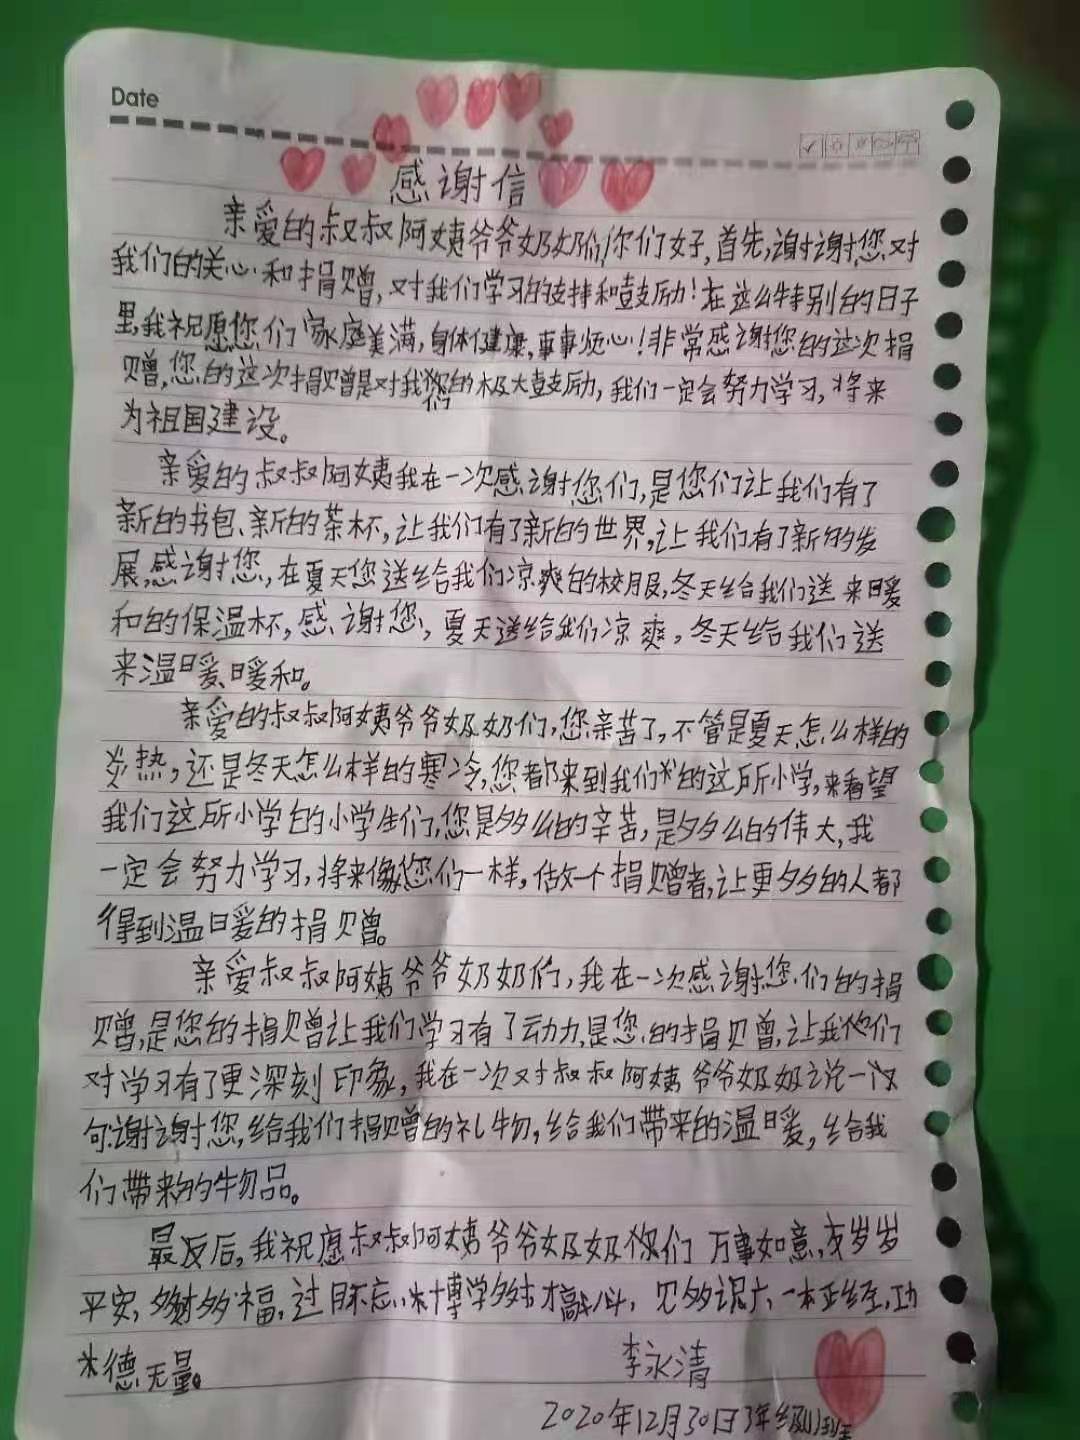 Date
感谢信
亲爱的叔叔阿姨爷爷奶奶们你们好,首先,谢谢您对
我们的关心和捐赠,对我们学习的支持和鼓励!在这么特别的日子
里,我祝愿您们家庭美满,身体健康,事事烦心!非常感谢您的这次捐
赠,您的这次捐赠是对我们的极大鼓励,我们一定会努力学习,将来
为祖国建设。
亲爱的叔叔阿姨我在一次感谢您们,是您们让我们有了
新的书包、新的茶杯,让我们有了新的世界,让我们有了新的发
展,感谢您,在夏天您送给我们凉爽的校服,冬天给我们送来暖
和的保温杯,感谢您,夏天送给我们凉爽,冬天给我们送
来温暖、暖和。
亲爱的叔叔阿姨爷爷奶奶们,您亲苦了,不管是夏天怎么样的
炎热,还是冬天怎么样的寒冷,您都来到我们的这所小学,来看望
我们这所小学的小学生们,您是多么的辛苦,是多么的伟大,我
一定会努力学习,将来像您们一样,做一个捐赠者,让更多的人都
得到温暖的捐赠。
亲爱叔叔阿姨爷爷奶奶们,我在一次感谢您们的捐
赠,是您的捐赠让我们学习有了动力,是您的捐赠,让我们
对学习有了更深刻印象,我在一次对叔叔阿姨爷爷奶奶说一
句:谢谢您,给我们捐赠的礼物,给我们带来的温暖,给我
们带来的物品。
最后,我祝愿叔叔阿姨爷爷奶奶你们万事如意,岁岁
平安,多财多福,过目不忘,博学多才,高八斗,见多识广,一本正经,功
德无量。
李永清
2020年12月30日3年级1班